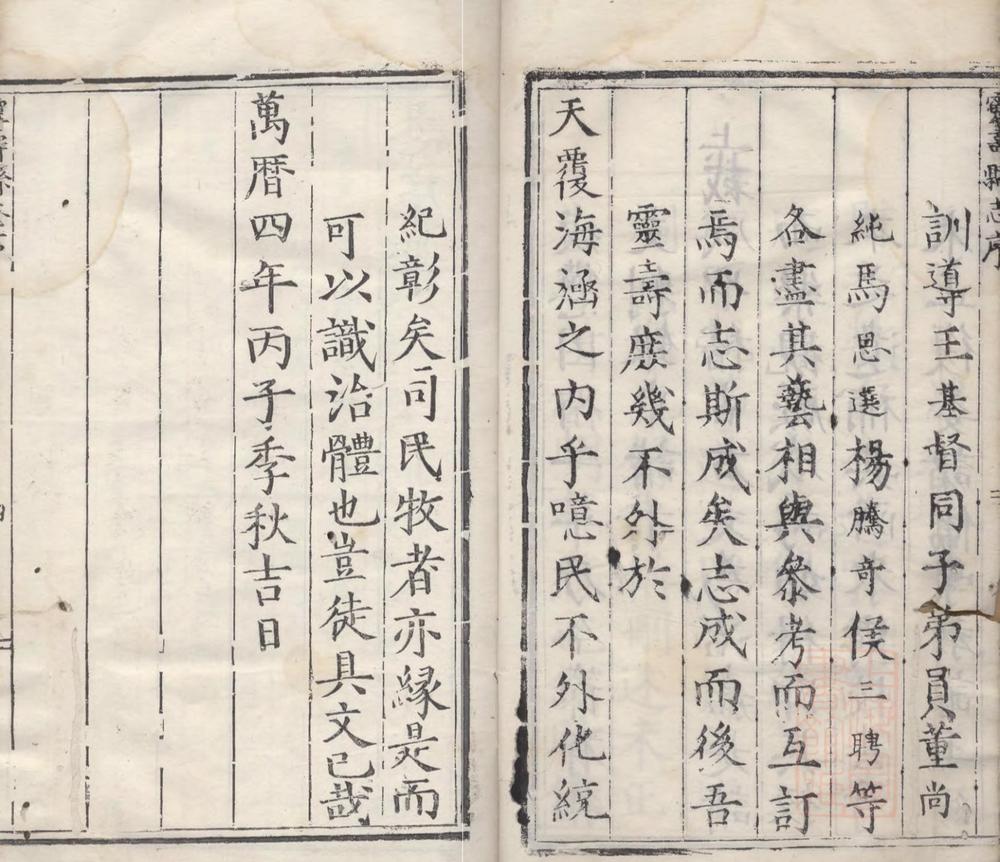 靈壽縣志序
訓導王基督同子弟員董尚
純馬思選楊騰奇侯三聘等
各盡其藝相與叅考而互訂
焉而志斯成矣志成而後吾
靈壽庻幾不外於
天覆海涵之内乎噫民不外化統
紀彰矣司民牧者亦緣是而
可以識治體也豈徒具文已哉
萬曆四年丙子季秋吉日